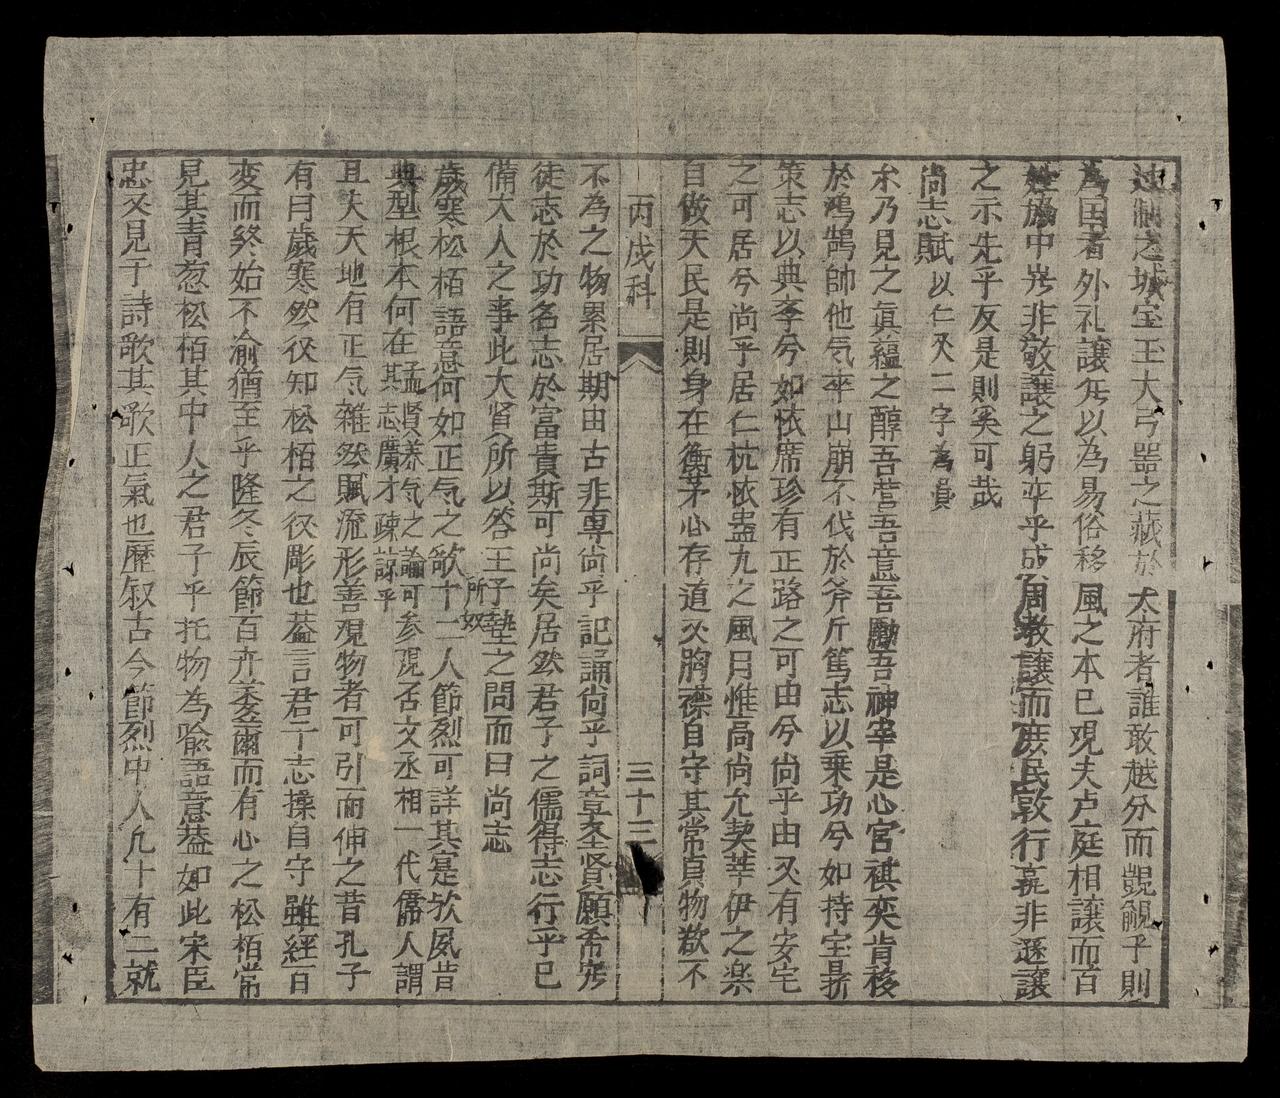 之城宝玉大弓噐之藏於太府者誰敢越分而覬覦乎則
為国者外礼讓旡以為易俗移風之本已覌夫卢庭相讓而百
中岂非敬讓之躬卒乎成周教讓而庶民敦行豈非遜讓
之示先乎友是則奚可哉
尚志賦以仁又二字為員
尒乃見之眞蘊之醇吾营吾意吾勵吾神宰是心宮祺奕肯移
於鴻鹄帥他気卒山崩不伐於斧斤篤志以乗功兮如持宝昜折
策志以典李兮如恢席珍有正路之可由兮尚乎由又有安宅
之可居兮尚乎居仁杭恢盅九之風月惟高尚尤契莘伊之楽
自做天民是則身在衡茅心存道义胸襟自守其常貞物欲不
丙戌科
三十三
不為之物累居期由古非専尚乎記誦尚乎詞章圣贤願希実
徒志於功名志於富貴斯可尚矣居然君子之儒得志行乎已
備大人之事此大贤所以答王子墊之問而曰尚志
歲寒松栢語意何如正気之歌十二人節烈可詳其寔欤
所奴
夙昔典型根本何在孟贤养気之論可参覌否文丞相一代儒人謂
其志廣才疎諒乎
且夫天地有正気雜然賦流形善覌物者可引而伸之昔孔子
有曰歲寒然後知松栢之後彫也蓋言君子志操自守雖經百
变而終始不渝猶至乎隆冬辰節百卉萎薾而有心之松栢常
見其青葱松栢其中人之君子乎托物為喩語意蓋如此宋臣
忠义見于詩歌其歌正氣也歷叙古今節烈中人凢十有二就